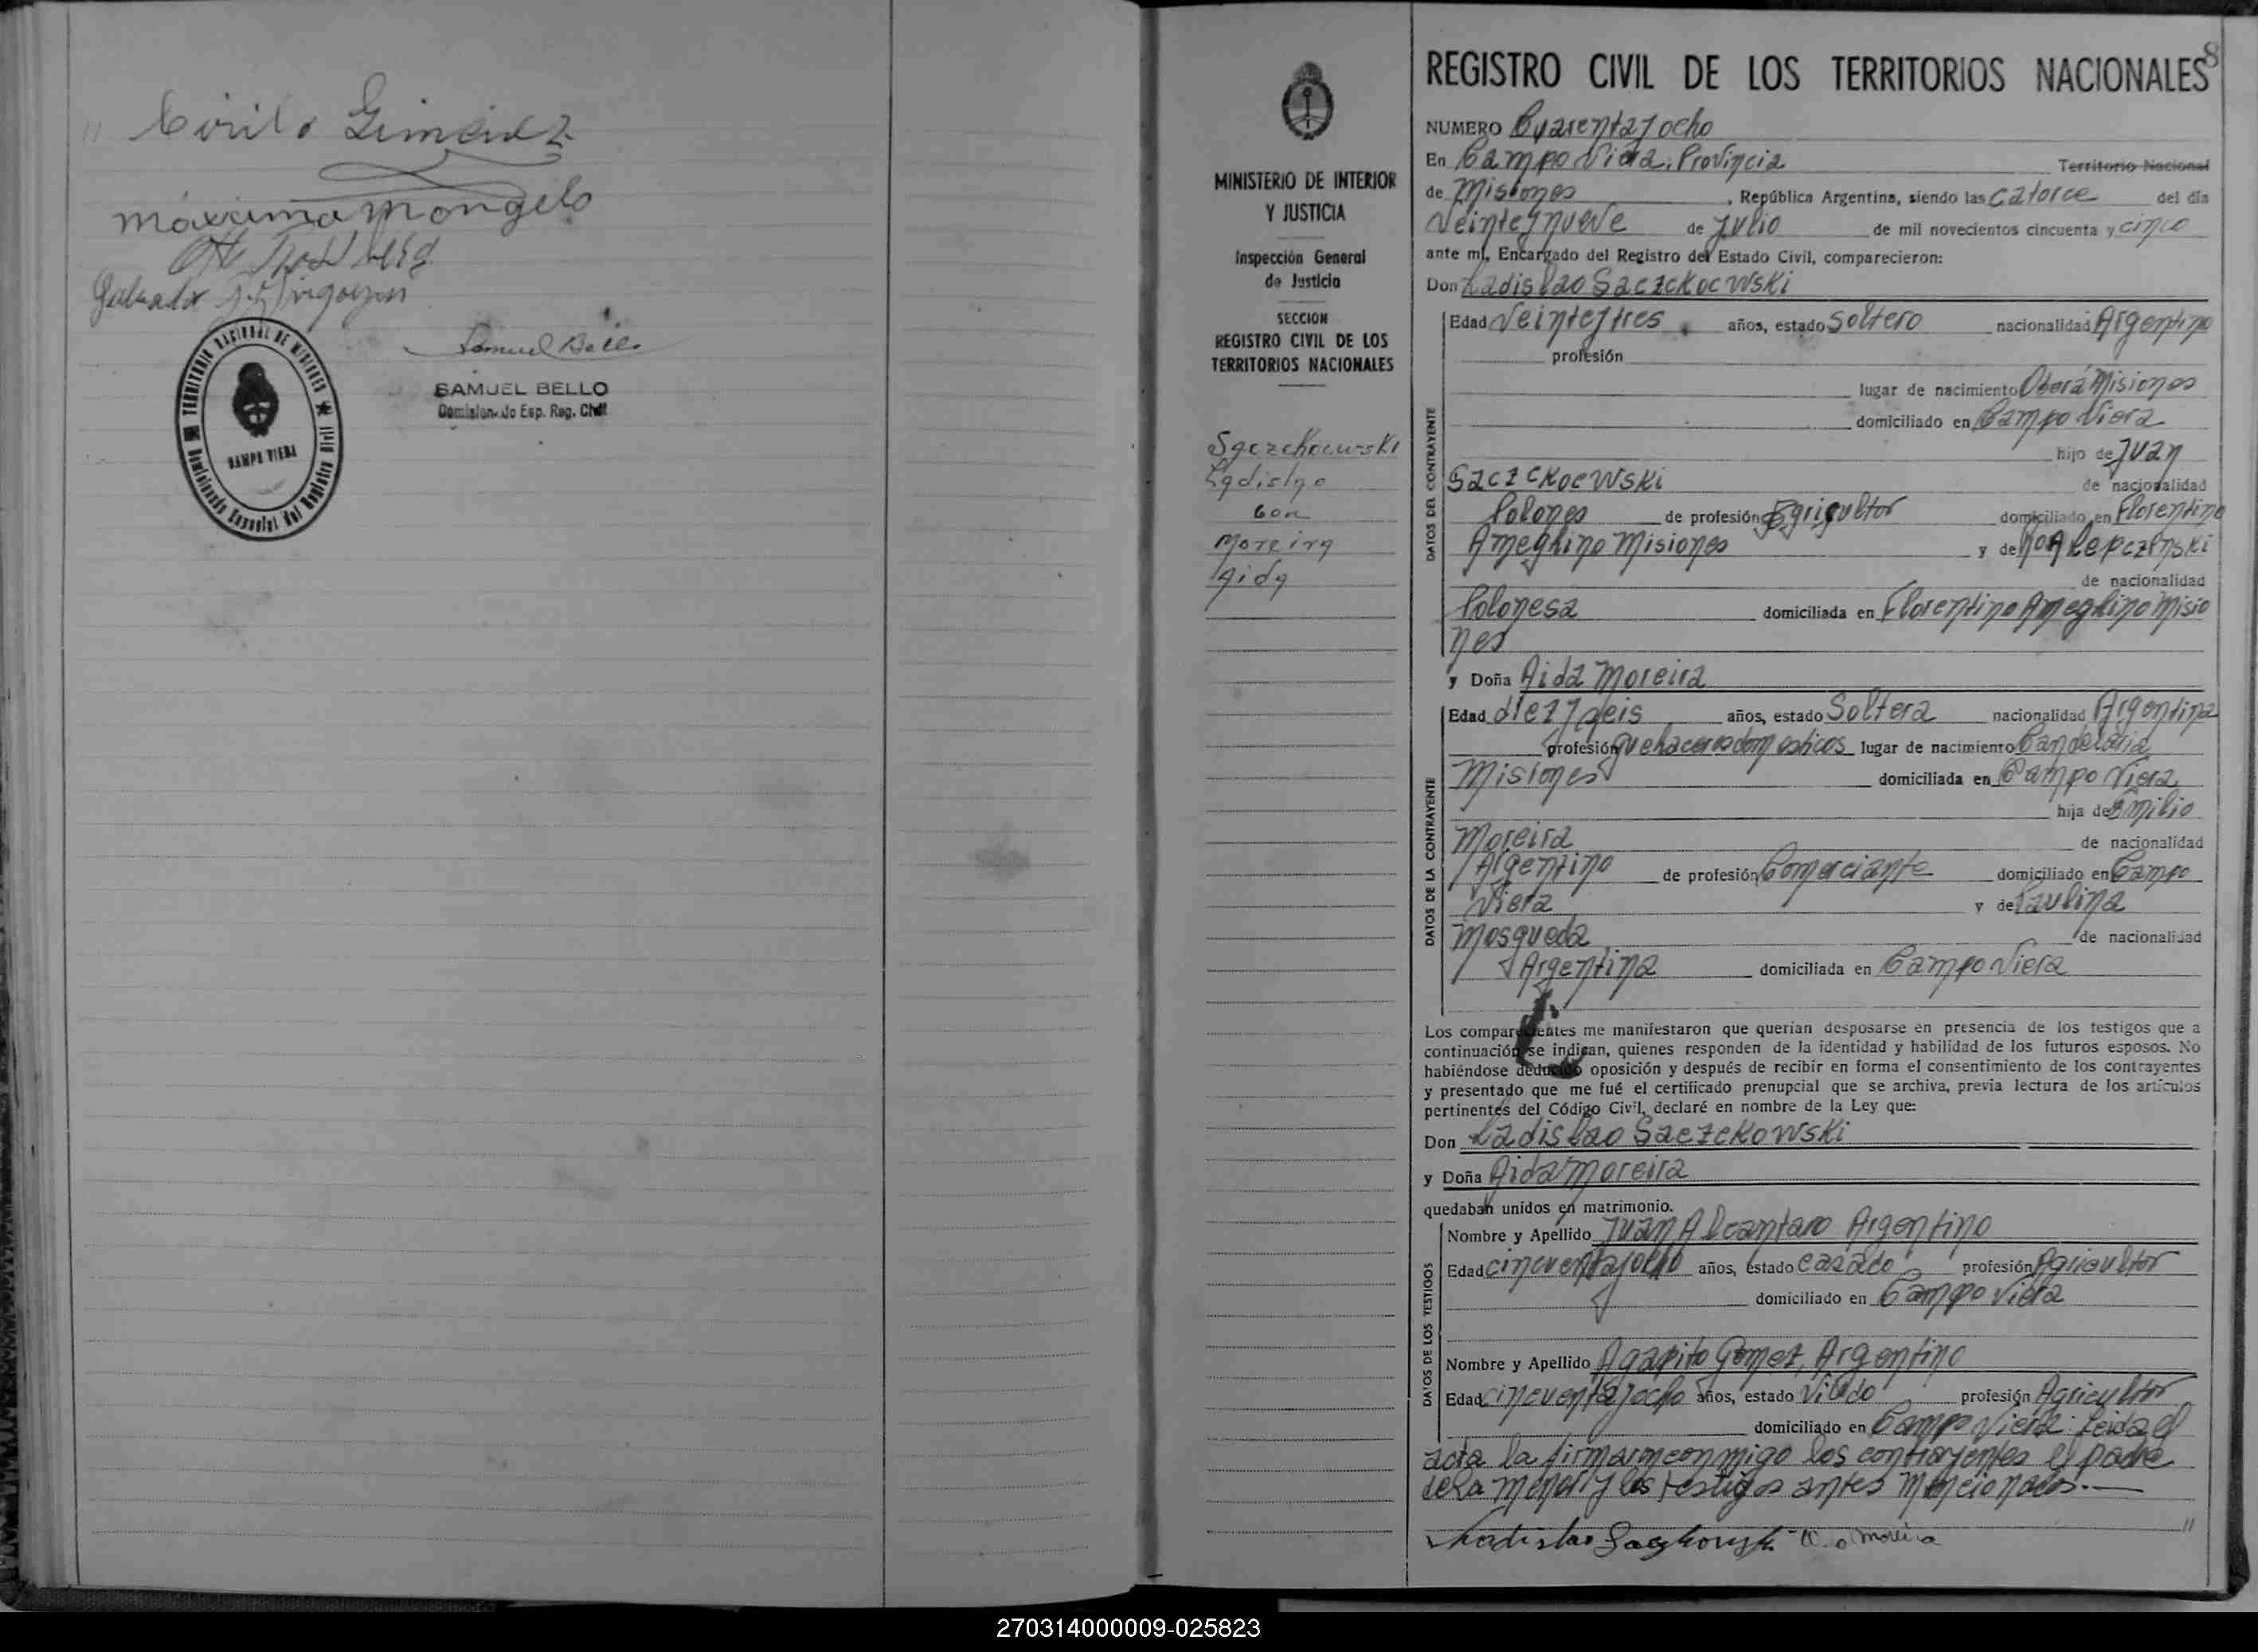 " Cirilo Gimenez
Máxima Mongelo
SAMUEL BELLO
Comisionado Esp. Reg. Civil
TERRITORIO NACIONAL DE MISIONES
CAMPO VIERA
Comisionado Especial del Registro Civil
MINISTERIO DE INTERIOR
Y JUSTICIA
Inspección General
de Justicia
SECCION
REGISTRO CIVIL DE LOS
TERRITORIOS NACIONALES
Saczckocwski
Ladislao
con
Moreira
Aida
8
REGISTRO CIVIL DE LOS TERRITORIOS NACIONALES
NUMERO Cuarenta y ocho
En Campo Viera, Provincia Territorio Nacional
de Misiones, República Argentina, siendo las catorce del día
veinte y nueve de Julio de mil novecientos cincuenta y cinco
ante mí, Encargado del Registro del Estado Civil, comparecieron:
Don Ladislao Saczckocwski
DATOS DEL CONTRAYENTE
Edad Veinte y tres años, estado Soltero nacionalidad Argentino
profesión
lugar de nacimiento Oberá Misiones
domiciliado en Campo Viera
hijo de Juan
Saczckocwski de nacionalidad
Polones de profesión Agricultor domiciliado en Florentino
Ameghino Misiones y de Lepczinski
de nacionalidad
Polonesa domiciliada en Florentino Ameghino Misio
nes
y Doña Aida Moreira
DATOS DE LA CONTRAYENTE
Edad diez y seis años, estado Soltera nacionalidad Argentina
profesión quehaceres domesticos lugar de nacimiento Candelaria
Misiones domiciliada en Campo Viera
hija de Emilio
Moreira de nacionalidad
Argentino de profesión Comerciante domiciliado en Campo
Viera y de Paulina
Mosqueda de nacionalidad
Argentina domiciliada en Campo Viera
Los comparecientes me manifestaron que querían desposarse en presencia de los testigos que a
continuación se indican, quienes responden de la identidad y habilidad de los futuros esposos. No
habiéndose deducido oposición y después de recibir en forma el consentimiento de los contrayentes
y presentado que me fué el certificado prenupcial que se archiva, previa lectura de los artículos
pertinentes del Código Civil, declaré en nombre de la Ley que:
Don Ladislao Saczckowski
y Doña Aida Moreira
quedaban unidos en matrimonio.
DATOS DE LOS TESTIGOS
Nombre y Apellido Juan Alcantaro Argentino
Edad cincuenta y ocho años, estado casado profesión Agricultor
domiciliado en Campo Viera
Nombre y Apellido Agapito Gomez, Argentino
Edad cincuenta y ocho años, estado Viudo profesión Agricultor
domiciliado en Campo Viera. Leida el
acta la firmaron conmigo los contrayentes el padre
de la menor y los testigos antes mencionados.—
Ladislao Saczkowski Moreira "
270314000009-025823